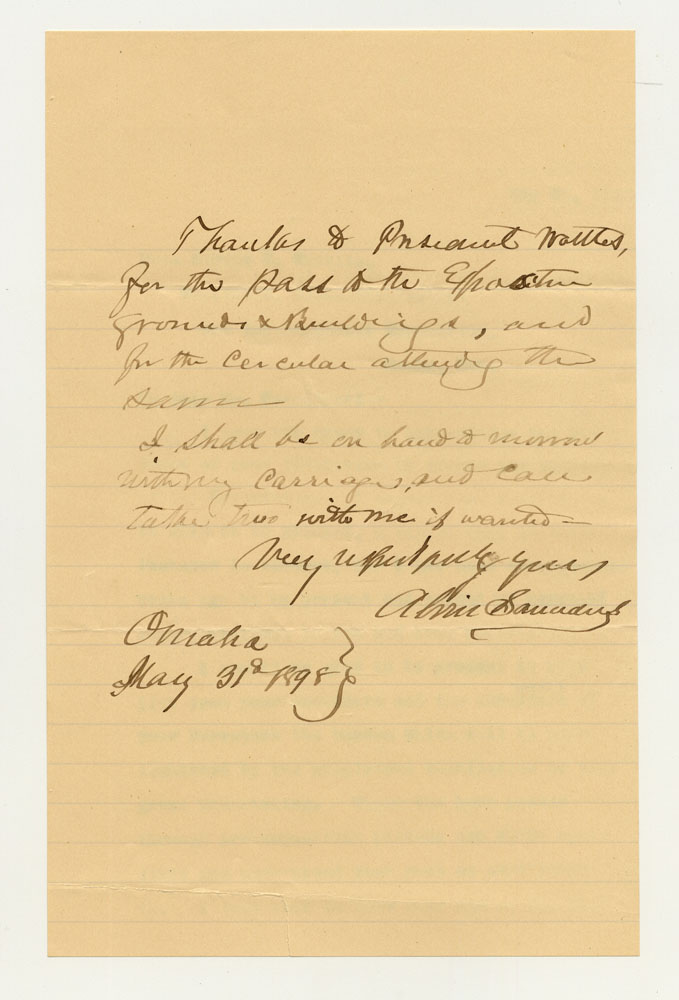 Thanks to President Wattles,
for the pass to the Exposition
grounds & Buildings, and
for the Circular attending the
same
I shall be on hand to morrow
with my Carriage, and can
take two with me if wanted –
Very respectfully yours
Alvin Saunders
Omaha
May 31st 1898